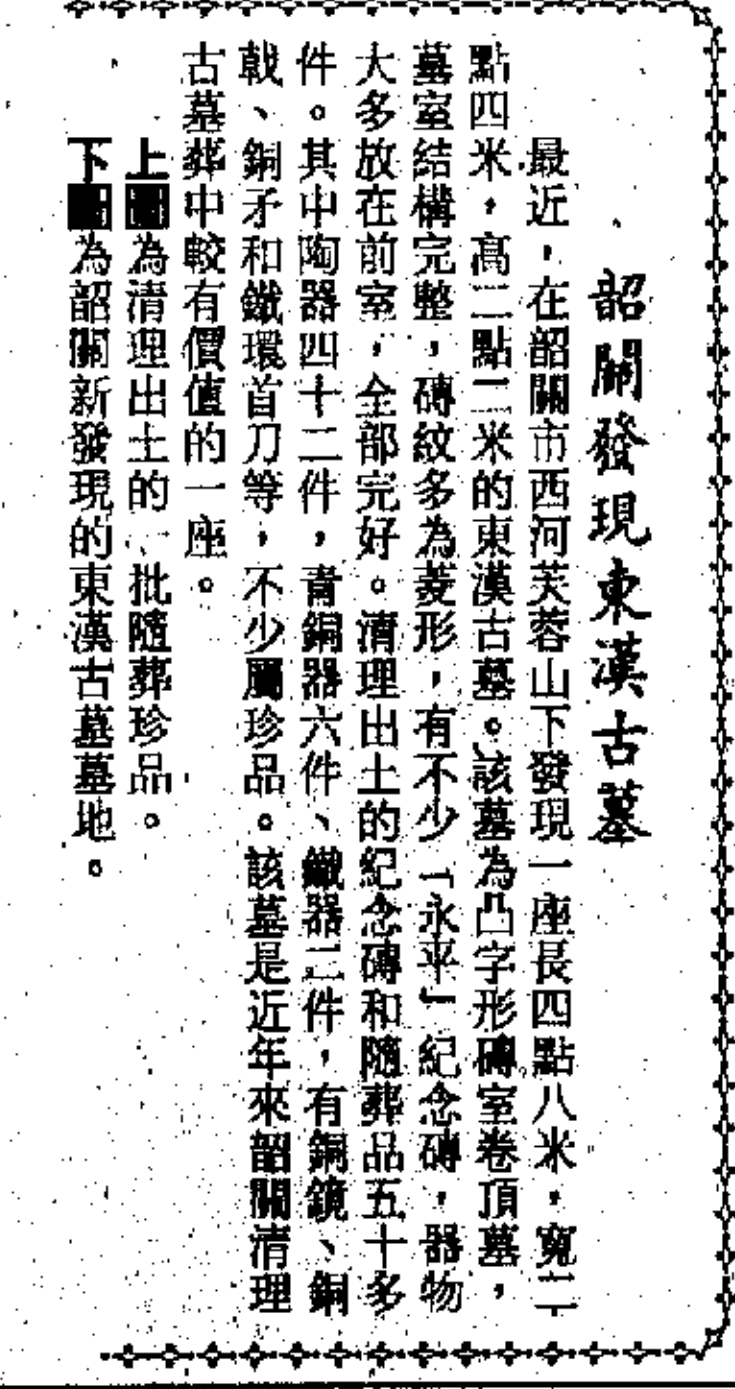 韶關發現東漢古墓
最近，在韶關市西河芙蓉山下發現一座長四點八米，寬二
點四米，高二點二米的東漢古墓。該墓為凸字形磚室卷頂墓，
墓室結構完整，磚紋多為菱形，有不少「永平」紀念磚，器物
大多放在前室，全部完好。清理出土的紀念磚和隨葬品五十多
件。其中陶器四十二件，青銅器六件、鐵器二件，有銅鏡、銅
戟、銅矛和鐵環首刀等，不少屬珍品。該墓是近年來韶關清理
古墓葬中較有價值的一座。
上圖為清理出土的一批隨葬珍品。
下圖為韶關新發現的東漢古墓墓地。